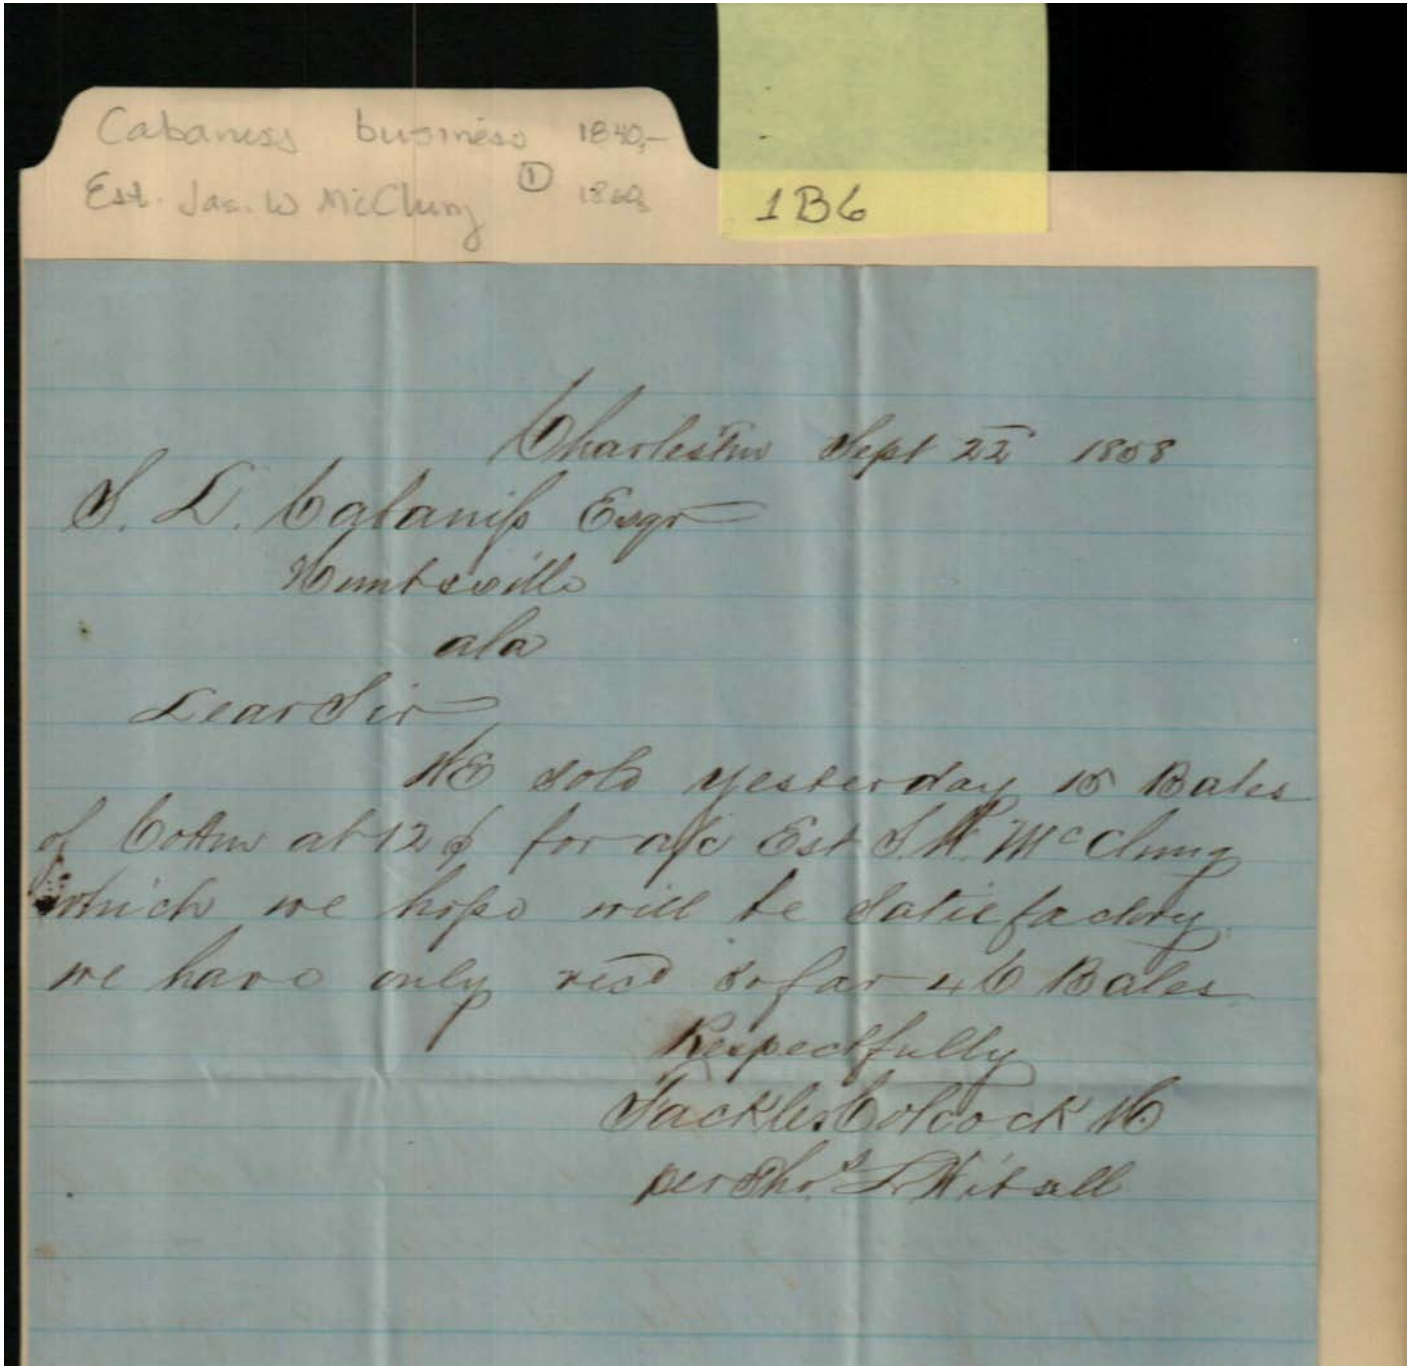 Cabaness business 1840,-
Est. Jas. W McClung ① 1860s
1B6
Charleston Sept 22 1858
S. D. Cabaniss Esqr
Huntsville
ala
Dear Sir
We sold yesterday 15 Bales
of Cotton at 12 ¢ for a/c Est J. W. McClung
which we hope will be satisfactory
we have only recd so far 46 Bales
Respectfully
Colcock
per Thos